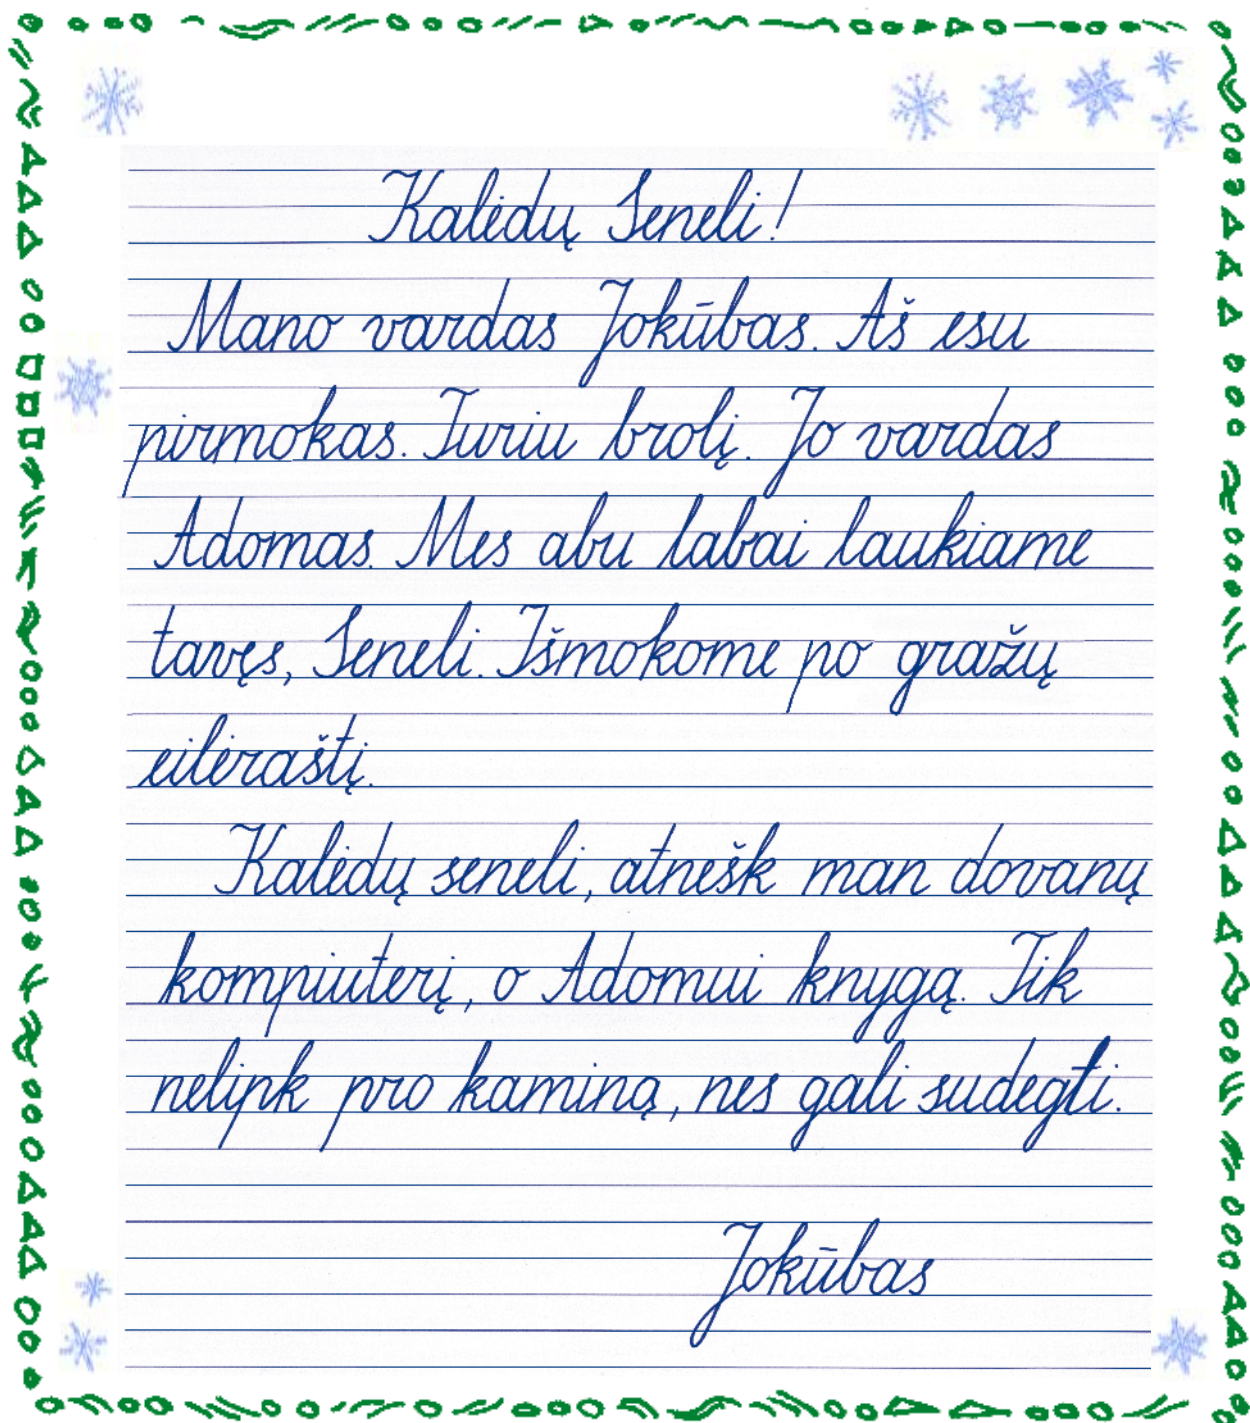 Kalėdų Seneli!
Mano vardas Jokūbas. Aš esu
pirmokas. Turiu brolį. Jo vardas
Adomas. Mes abu labai laukiame
tavęs, Seneli. Išmokome po gražų
eilėraštį.
Kalėdų seneli, atnešk man dovanų
kompiuterį, o Adomui knygą. Tik
nelipk pro kaminą, nes gali sudegti.
Jokūbas